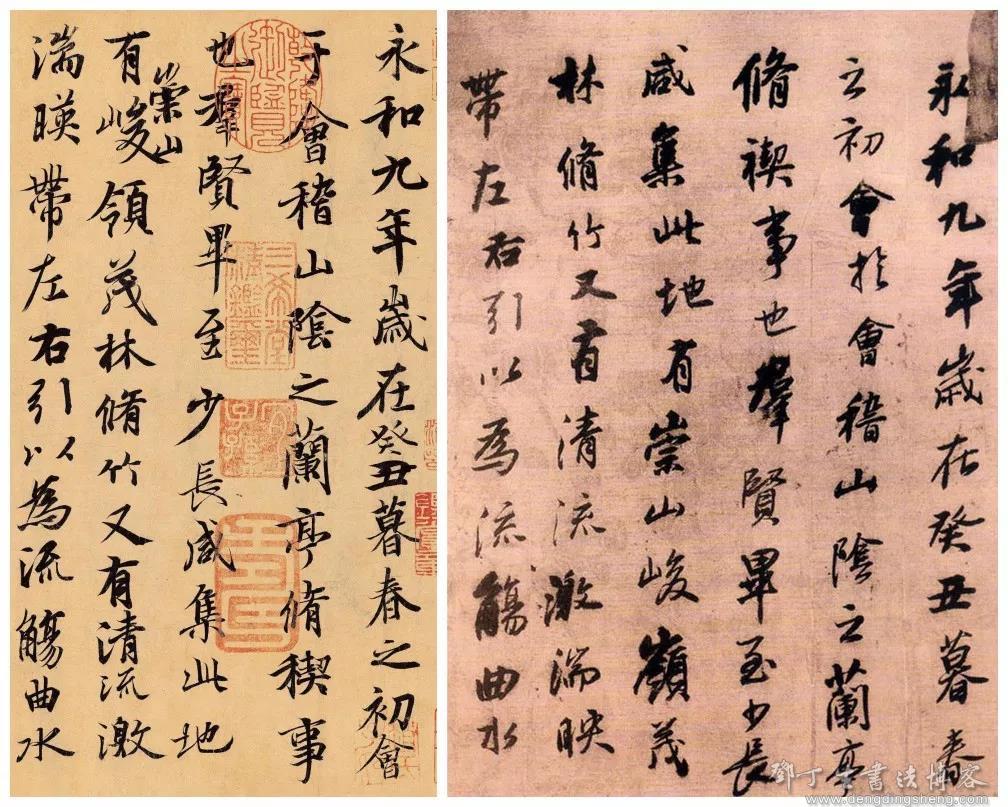 永和九年歲在癸丑暮春之初會
于會稽山陰之蘭亭脩稧事
也羣賢畢至少長咸集此地
有崇山峻領茂林脩竹又有清流激
湍暎帶左右引以為流觴曲水
三希堂精鑑璽
宜子孫
永和九年歲在癸丑暮春
之初會於會稽山陰之蘭亭
脩禊事也羣賢畢至少長
咸集此地有崇山峻嶺茂
林脩竹又有清流激湍映
帶左右引以為流觴曲水
鄧丁生書法博客
www.dengdingsheng.com